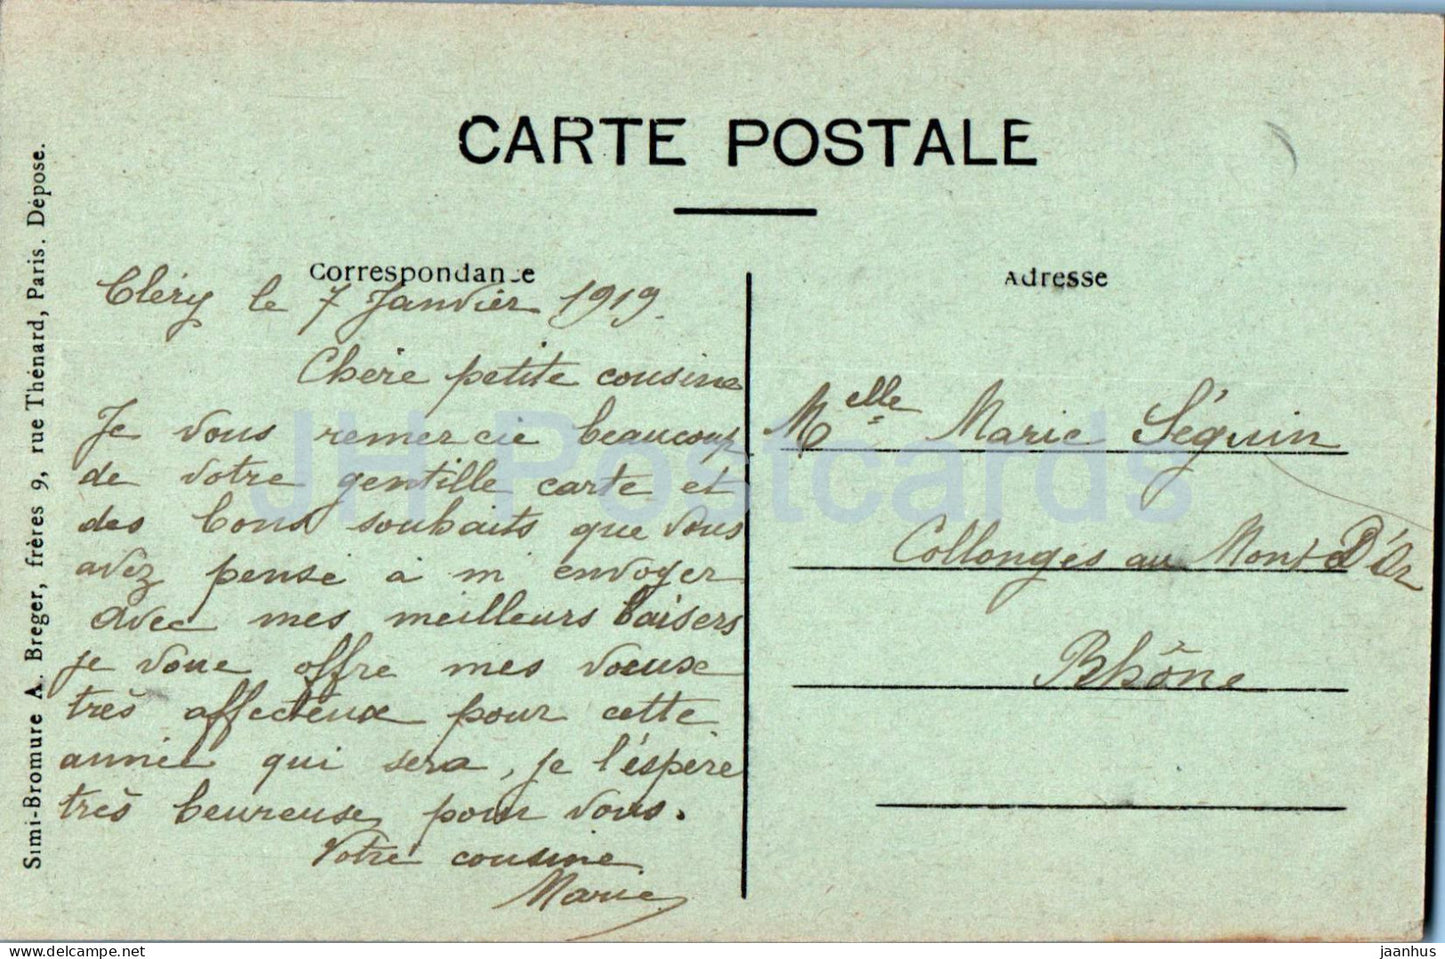 CARTE POSTALE
Correspondance
Adresse
Simi-Bromure A. Breger, frères 9, rue Thénard, Paris. Déposé.
Cléry le 7 Janvier 1919.
Chère petite cousine
Je vous remercie beaucoup
de votre gentille carte et
des bons souhaits que vous
avez pensé à m envoyer
Avec mes meilleurs baisers
je vous offre mes voeux
très affectueux pour cette
année qui sera, je l'éspère
très heureuse pour vous.
Votre cousine
Marie
Melle Marie Séguin
Collonges au Mont D'Or
Rhône
JH Postcards
www.delcampe.net
jaanhus